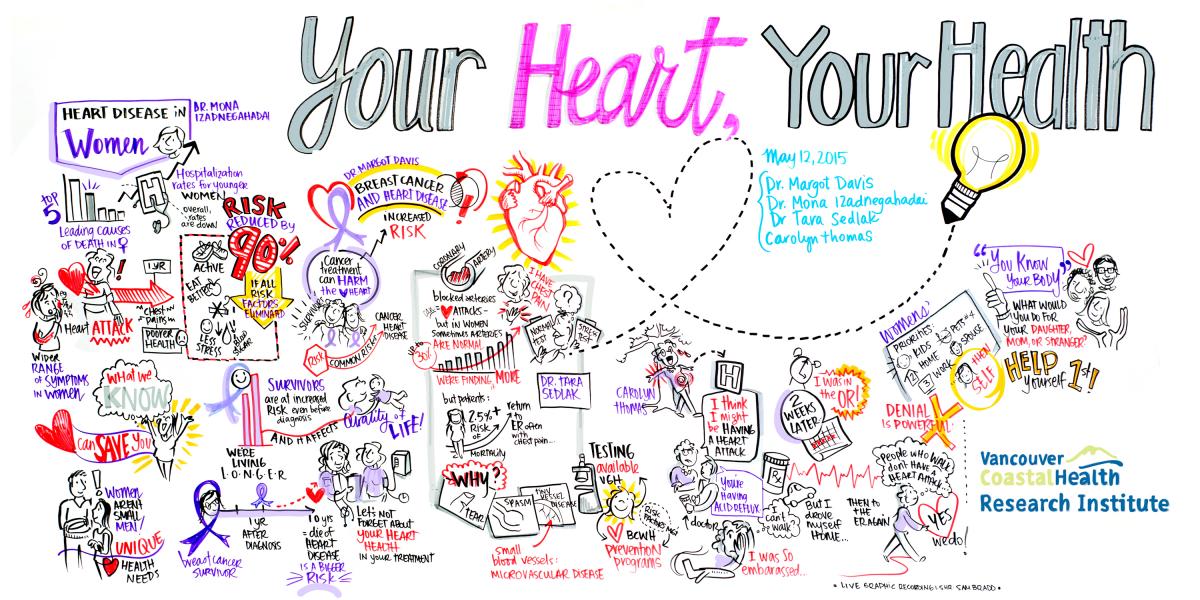 Your Heart, Your Health
May 12, 2015
Dr. Margot Davis
Dr. Mona Izadnegahadai
Dr Tara Sedlak
Carolyn Thomas
HEART DISEASE IN
Women
DR. MONA
IZADNEGAHADAI
TOP
5
Leading causes
OF DEATH IN ♀
H
Hospitalization
rates for younger
WOMEN
overall,
rates
are down
RISK
REDUCED BY
90%
IF ALL
RISK
FACTORS
ELIMINATED
ACTIVE
EAT
BETTER
LESS
STRESS
Heart ATTACK
1 YR
"chest
pains"
POORER
HEALTH
WIDER
RANGE
OF SYMPTOMS
IN WOMEN
WHAT WE
KNOW
Can SAVE You
WOMEN
AREN'T
SMALL
MEN!
UNIQUE
HEALTH
NEEDS
DR MARGOT DAVIS
BREAST CANCER
AND HEART DISEASE
INCREASED
RISK
Cancer
treatment
can HARM
the HEART
Survivors
RISK
COMMON RISKS
CANCER
HEART
DISEASE
SURVIVORS
are at increased
RISK even before
diagnosis
AND IT AFFECTS
Quality of
LIFE!
WE'RE
LIVING
LONGER
breast cancer
SURVIVOR
1 yr
AFTER
DIAGNOSIS
10 yrs
= die of
HEART
DISEASE
IS A BIGGER
RISK
Let's
NOT
FORGET ABOUT
YOUR HEART
HEALTH
IN YOUR TREATMENT
CORONARY
ARTERY
blocked arteries
ATTACKS -
but IN WOMEN
sometimes ARTERIES
ARE NORMAL
UP TO
30%
WE'RE FINDING MORE
I HAVE
CHEST
PAIN
NORMAL
TEST
STRESS
TEST
DR. TARA
SEDLAK
but patients:
2.5%+
RISK
OF
MORTALITY
return
TO
ER often
with
chest pain...
WHY?
TEAR
SPASM
TINY
VESSEL
DISEASE
small
blood vessels:
MICROVASCULAR DISEASE
TESTING
available
VGH
RISK
FACTORS
BCWH
Prevention
programs
CAROLYN
THOMAS
H
I think
I might
be HAVING
A HEART
ATTACK
You're
HAVING
ACID REFLUX
doctor
I was so
embarassed...
2
WEEKS
LATER
I was in
the OR!
I can't
walk?
BUT I
drove
myself
HOME...
THEN TO
THE
ER AGAIN
WOMENS'
PRIORITIES
1 KIDS
2 HOME
3 WORK
PETS #4
SPOUSE
THEN
SELF
DENIAL
IS POWERFUL
People who WALK
don't HAVE A
HEART ATTACK
YES
we do!
"You Know
Your BODY"
WHAT WOULD
You Do FOR
Your DAUGHTER,
MOM, OR STRANGER?
HELP
Yourself 1st!
Vancouver
CoastalHealth
Research Institute
• LIVE GRAPHIC RECORDING: SAM BRADD •